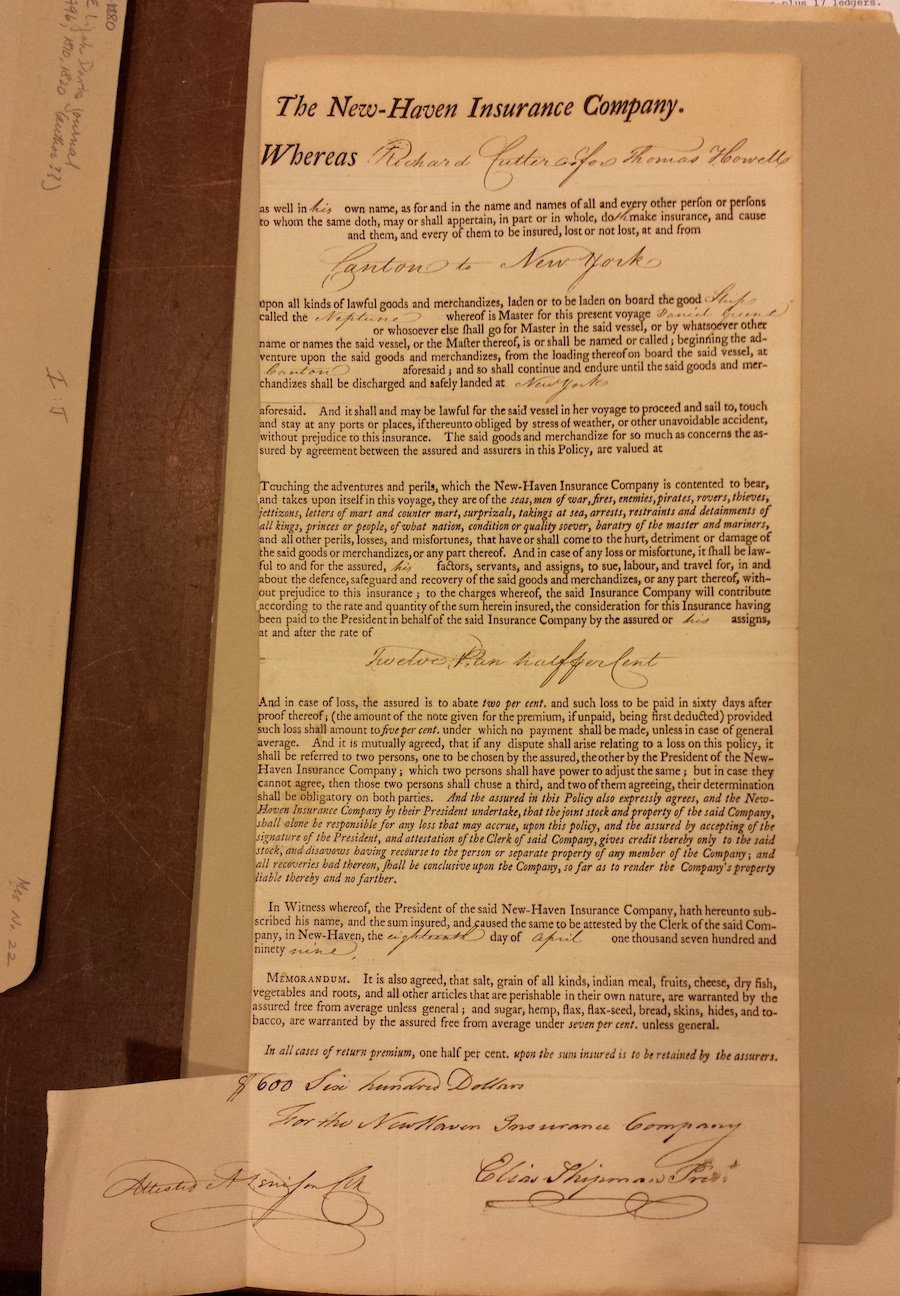 plus 17 ledgers.
1880
Journal
1820
I : J
Ms No 22
The New-Haven Insurance Company.
Whereas Richard Cutter for Thomas Howell
as well in his own name, as for and in the name and names of all and every other perſon or perſons
to whom the same doth, may or shall appertain, in part or in whole, doth make insurance, and cause
and them, and every of them to be insured, lost or not lost, at and from
Canton to New York
upon all kinds of lawful goods and merchandizes, laden or to be laden on board the good Ship
called the Neptune whereof is Master for this present voyage Daniel Greene
or whosoever else ſhall go for Master in the said vessel, or by whatsoever other
name or names the said vessel, or the Maſter thereof, is or shall be named or called; beginning the ad-
venture upon the said goods and merchandizes, from the loading thereof on board the said vessel, at
Canton aforesaid; and so shall continue and endure until the said goods and mer-
chandizes shall be discharged and safely landed at New York
aforesaid. And it shall and may be lawful for the said vessel in her voyage to proceed and sail to, touch
and stay at any ports or places, if thereunto obliged by stress of weather, or other unavoidable accident,
without prejudice to this insurance. The said goods and merchandize for so much as concerns the as-
sured by agreement between the assured and assurers in this Policy, are valued at
Touching the adventures and perils, which the New-Haven Insurance Company is contented to bear,
and takes upon itself in this voyage, they are of the seas, men of war, fires, enemies, pirates, rovers, thieves,
jettizons, letters of mart and counter mart, surprizals, takings at sea, arrests, restraints and detainments of
all kings, princes or people, of what nation, condition or quality soever, baratry of the master and mariners,
and all other perils, losses, and misfortunes, that have or shall come to the hurt, detriment or damage of
the said goods or merchandizes, or any part thereof. And in case of any loss or misfortune, it ſhall be law-
ful to and for the assured, his factors, servants, and assigns, to sue, labour, and travel for, in and
about the defence, safeguard and recovery of the said goods and merchandizes, or any part thereof, with-
out prejudice to this insurance; to the charges whereof, the said Insurance Company will contribute
according to the rate and quantity of the sum herein insured, the consideration for this Insurance having
been paid to the President in behalf of the said Insurance Company by the assured or his assigns,
at and after the rate of
Twelve & an half per Cent
And in case of loss, the assured is to abate two per cent. and such loss to be paid in sixty days after
proof thereof; (the amount of the note given for the premium, if unpaid, being first deducted) provided
such loss shall amount to five per cent. under which no payment shall be made, unless in case of general
average. And it is mutually agreed, that if any dispute shall arise relating to a loss on this policy, it
shall be referred to two persons, one to be chosen by the assured, the other by the President of the New-
Haven Insurance Company; which two persons shall have power to adjust the same; but in case they
cannot agree, then those two persons shall chuse a third, and two of them agreeing, their determination
shall be obligatory on both parties. And the assured in this Policy also expressly agrees, and the New-
Haven Insurance Company by their President undertake, that the joint stock and property of the said Company,
shall alone be responsible for any loss that may accrue, upon this policy, and the assured by accepting of the
signature of the President, and attestation of the Clerk of said Company, gives credit thereby only to the said
stock, and disavows having recourse to the person or separate property of any member of the Company; and
all recoveries had thereon, ſhall be conclusive upon the Company, so far as to render the Company's property
liable thereby and no farther.
In Witness whereof, the President of the said New-Haven Insurance Company, hath hereunto sub-
scribed his name, and the sum insured, and caused the same to be attested by the Clerk of the said Com-
pany, in New-Haven, the eighteenth day of April one thousand seven hundred and
ninety nine.
MEMORANDUM. It is also agreed, that salt, grain of all kinds, indian meal, fruits, cheese, dry fish,
vegetables and roots, and all other articles that are perishable in their own nature, are warranted by the
assured free from average unless general; and sugar, hemp, flax, flax-seed, bread, skins, hides, and to-
bacco, are warranted by the assured free from average under seven per cent. unless general.
In all cases of return premium, one half per cent. upon the sum insured is to be retained by the assurers.
$600 Six hundred Dollars
For the New Haven Insurance Company
Elias Shipman Presdt
Attested Clk